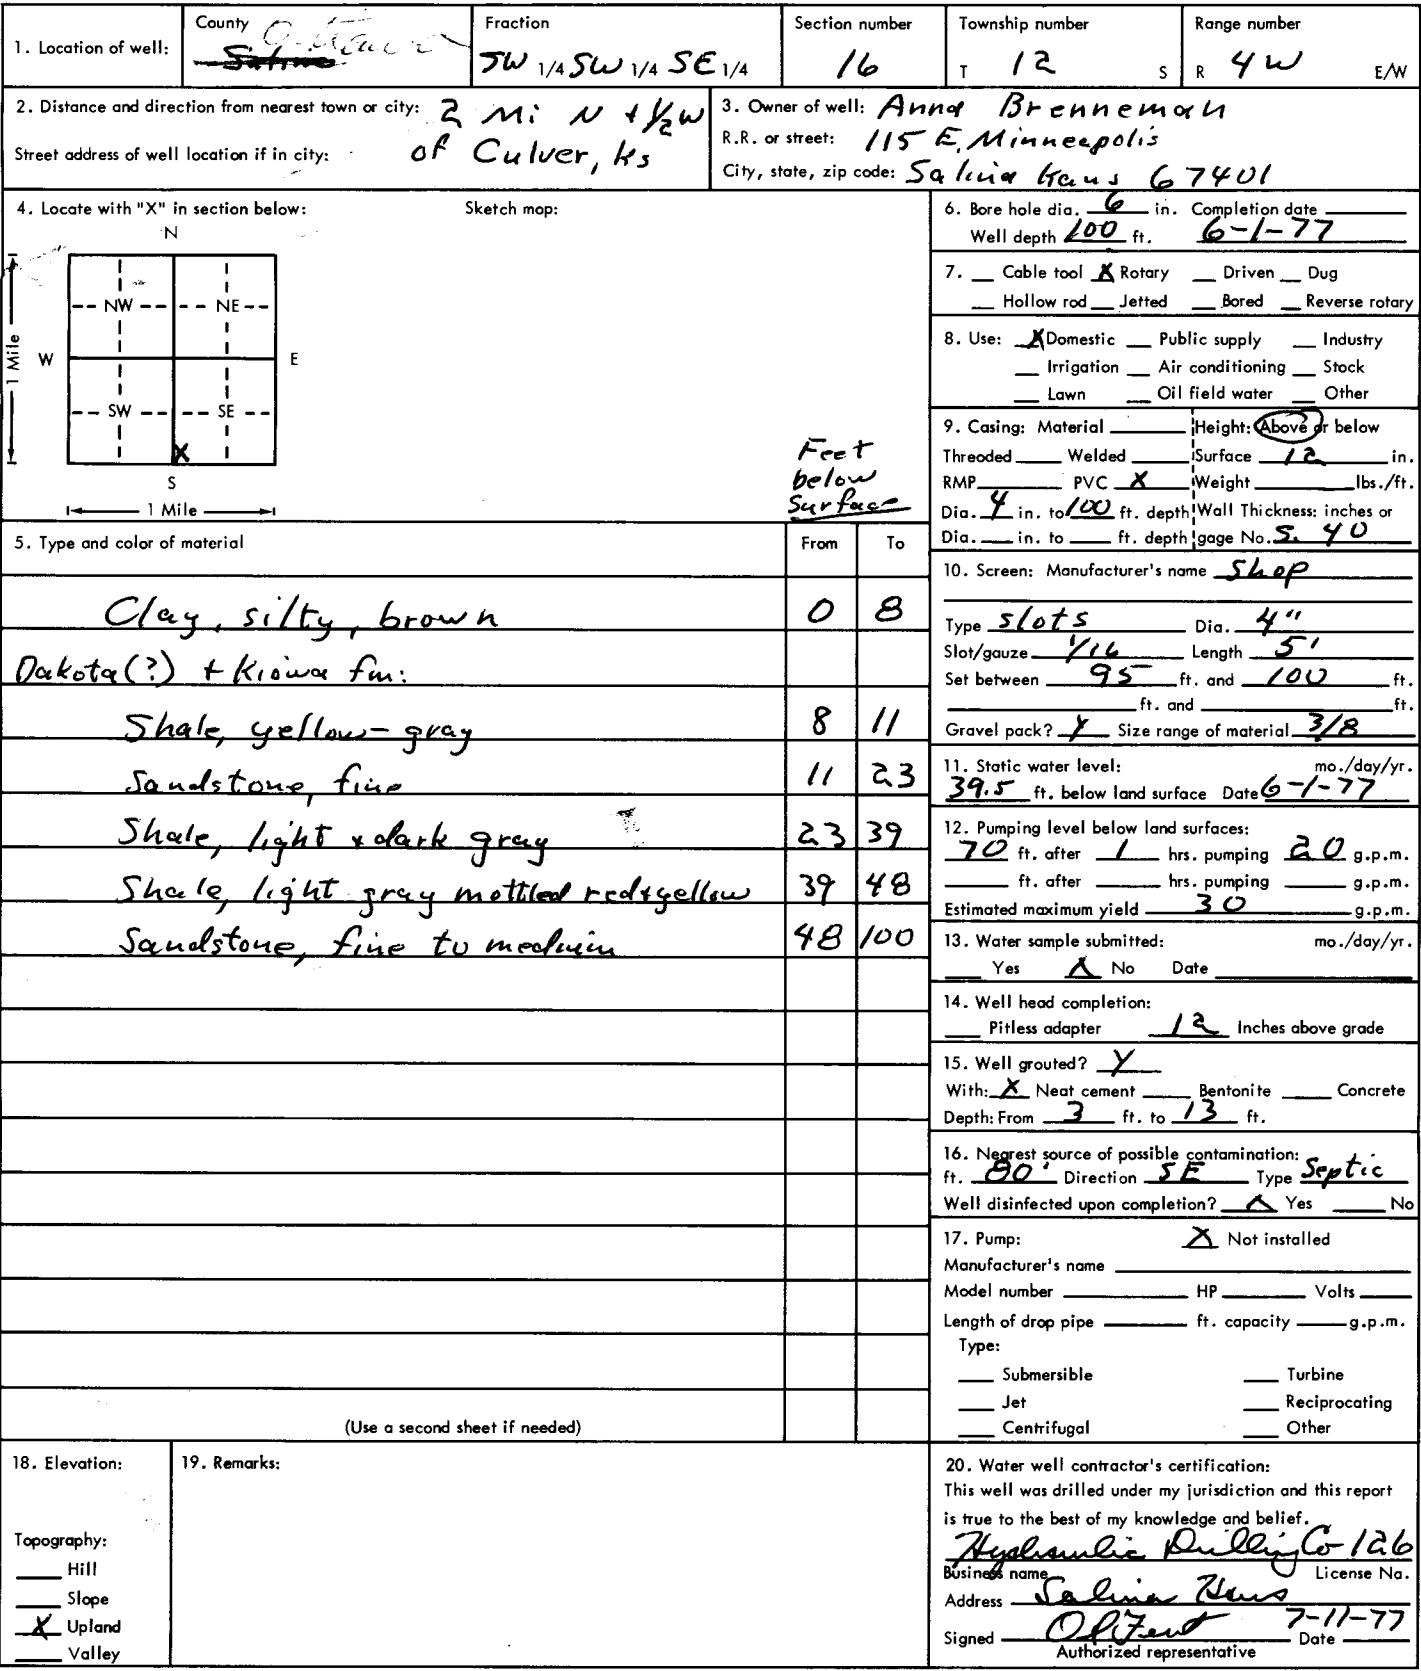 1. Location of well:
County Ottawa Saline
Fraction SW 1/4 SW 1/4 SE 1/4
Section number 16
Township number T 12 S
Range number R 4W E/W
2. Distance and direction from nearest town or city: 2 Mi N + 1/2 W
Street address of well location if in city: of Culver, Ks
3. Owner of well: Anna Brenneman
R.R. or street: 115 E. Minneapolis
City, state, zip code: Salina Kans 67401
4. Locate with "X" in section below: Sketch map:
N
NW NE
W E
1 Mile
SW SE
X
S
1 Mile
Feet
below
Surface
5. Type and color of material From To
Clay, silty, brown 0 8
Dakota(?) + Kiowa fm:
Shale, yellow-gray 8 11
Sandstone, fine 11 23
Shale, light + dark gray 23 39
Shale, light gray mottled red+yellow 39 48
Sandstone, fine to medium 48 100
(Use a second sheet if needed)
6. Bore hole dia. 6 in. Completion date
Well depth 100 ft. 6-1-77
7. Cable tool X Rotary Driven Dug
Hollow rod Jetted Bored Reverse rotary
8. Use: X Domestic Public supply Industry
Irrigation Air conditioning Stock
Lawn Oil field water Other
9. Casing: Material Height: Above or below
Threaded Welded Surface 12 in.
RMP PVC X Weight lbs./ft.
Dia. 4 in. to 100 ft. depth Wall Thickness: inches or
Dia. in. to ft. depth gage No. S. 40
10. Screen: Manufacturer's name Shop
Type slots Dia. 4"
Slot/gauze 1/16 Length 5'
Set between 95 ft. and 100 ft.
ft. and ft.
Gravel pack? Y Size range of material 3/8
11. Static water level: mo./day/yr.
39.5 ft. below land surface Date 6-1-77
12. Pumping level below land surfaces:
70 ft. after 1 hrs. pumping 20 g.p.m.
ft. after hrs. pumping g.p.m.
Estimated maximum yield 30 g.p.m.
13. Water sample submitted: mo./day/yr.
Yes X No Date
14. Well head completion:
Pitless adapter 12 Inches above grade
15. Well grouted? Y
With: X Neat cement Bentonite Concrete
Depth: From 3 ft. to 13 ft.
16. Nearest source of possible contamination:
ft. 80' Direction SE Type Septic
Well disinfected upon completion? X Yes No
17. Pump: X Not installed
Manufacturer's name
Model number HP Volts
Length of drop pipe ft. capacity g.p.m.
Type:
Submersible Turbine
Jet Reciprocating
Centrifugal Other
18. Elevation:
Topography:
Hill
Slope
X Upland
Valley
19. Remarks:
20. Water well contractor's certification:
This well was drilled under my jurisdiction and this report
is true to the best of my knowledge and belief.
Hydraulic Drilling Co 126
Business name License No.
Address Salina Kans
Signed 7-11-77 Date
Authorized representative